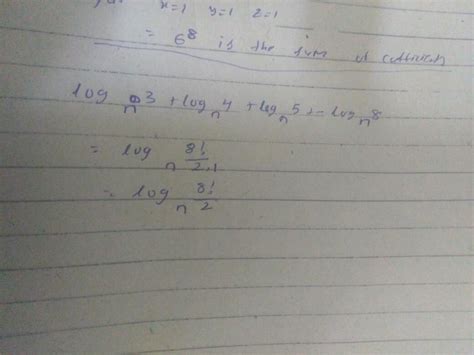 x=1 y=1 z=1
= 6⁸ is the sum of
log n 3 + log n 4 + log n 5 + - log n 8
= log n 8!/2.1
= log n 8!/2